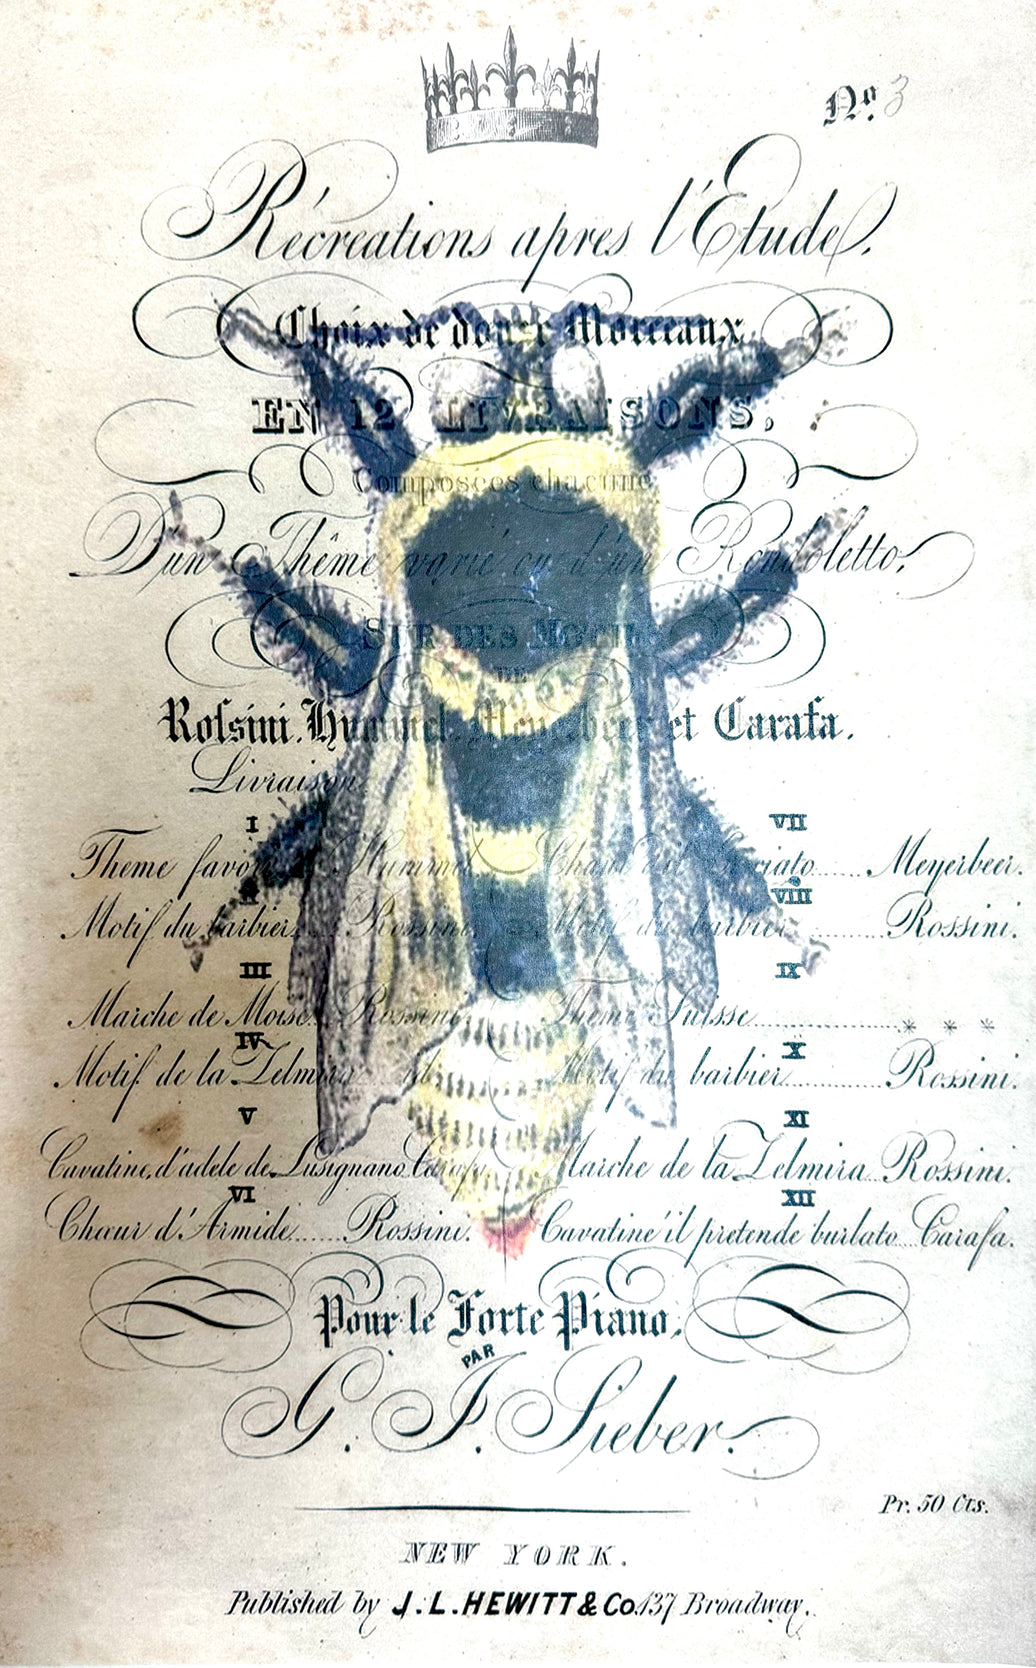 No. 3
Récréations apres l'Etude.
Choix de douze Morceaux
EN 12 LIVRAISONS,
Composées chacune
D'un Thême varié ou d'un Rondoletto,
SUR DES MOTIFS
DE
Rossini. Hummel. Meyerbeer et Carafa.
Livraison
I
Theme favori Hummel
II
Motif du barbier Rossini
III
Marche de Moise Rossini
IV
Motif de la Zelmira id.
V
Cavatine, d'adele de Lusignano Carafa
VI
Chœur d'Armide...... Rossini.
VII
Meyerbeer.
VIII
Motif du barbier ......... Rossini.
IX
Theme Suisse.................. * * *
X
Motif du barbier........... Rossini.
XI
Marche de la Zelmira Rossini.
XII
Cavatine il pretende burlato Carafa.
Pour le Forte Piano,
PAR
G. J. Sieber.
Pr. 50 Cts.
NEW YORK.
Published by J. L. HEWITT & Co. 137 Broadway.